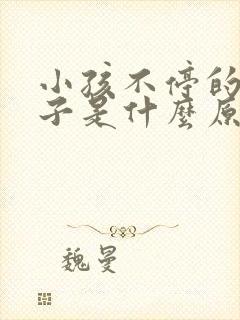 小孩不停的
子是什麼原
魏曼